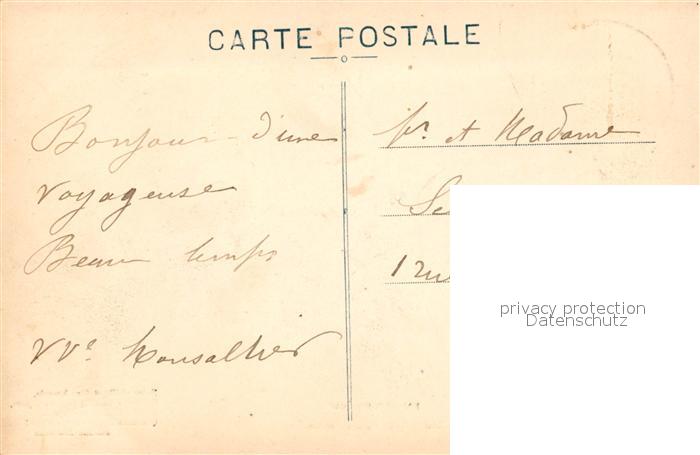 CARTE POSTALE
Bonjour d'une
voyageuse
Beau temps
VVe Monsallier
Mr et Madame
Se
1 rue
privacy protection
Datenschutz